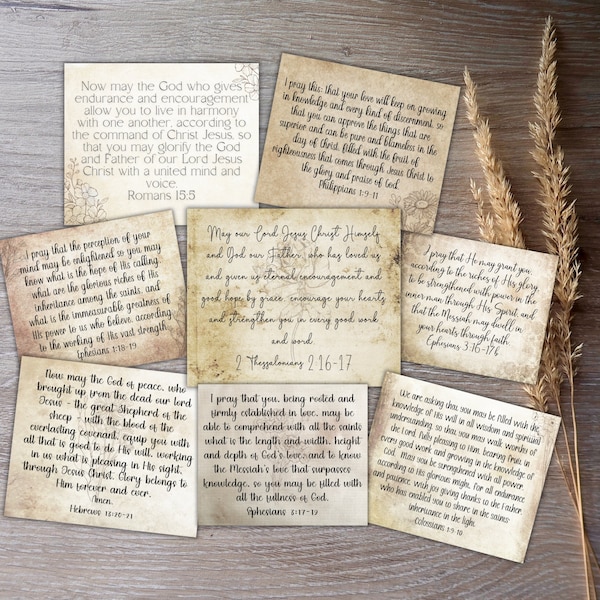 Now may the God who gives
endurance and encouragement
allow you to live in harmony
with one another, according to
the command of Christ Jesus, so
that you may glorify the God
and Father of our Lord Jesus
Christ with a united mind and
voice.
Romans 15:5
I pray this: that your love will keep on growing
in knowledge and every kind of discernment, so
that you can approve the things that are
superior and can be pure and blameless in the
day of Christ, filled with the fruit of
righteousness that comes through Jesus Christ to
the glory and praise of God.
Philippians 1:9-11
I pray that the perception of your
mind may be enlightened so you may
know what is the hope of His calling,
what are the glorious riches of His
inheritance among the saints, and
what is the immeasurable greatness of
His power to us who believe, according
to the working of His vast strength.
Ephesians 1:18-19
May our Lord Jesus Christ Himself
and God our Father, who has loved us
and given us eternal encouragement and
good hope by grace, encourage your hearts
and strengthen you in every good work
and word.
2 Thessalonians 2:16-17
I pray that He may grant you,
according to the riches of His glory,
to be strengthened with power in the
inner man through His Spirit, and
that the Messiah may dwell in
your hearts through faith.
Ephesians 3:16-17a
Now may the God of peace, who
brought up from the dead our lord
Jesus - the great Shepherd of the
sheep - with the blood of the
everlasting covenant, equip you with
all that is good to do His will, working
in us what is pleasing in His sight,
through Jesus Christ. Glory belongs to
Him forever and ever.
Amen.
Hebrews 13:20-21
I pray that you, being rooted and
firmly established in love, may be
able to comprehend with all the saints
what is the length and width, height
and depth of God's love, and to know
the Messiah's love that surpasses
knowledge, so you may be filled with
all the fullness of God.
Ephesians 3:17-19
We are asking that you may be filled with the
knowledge of His will in all wisdom and spiritual
understanding, so that you may walk worthy of
the Lord, fully pleasing to Him, bearing fruit in
every good work and growing in the knowledge of
God. May you be strengthened with all power,
according to His glorious might, for all endurance
and patience, with joy giving thanks to the Father,
who has enabled you to share in the saints'
inheritance in the light.
Colossians 1:9-10